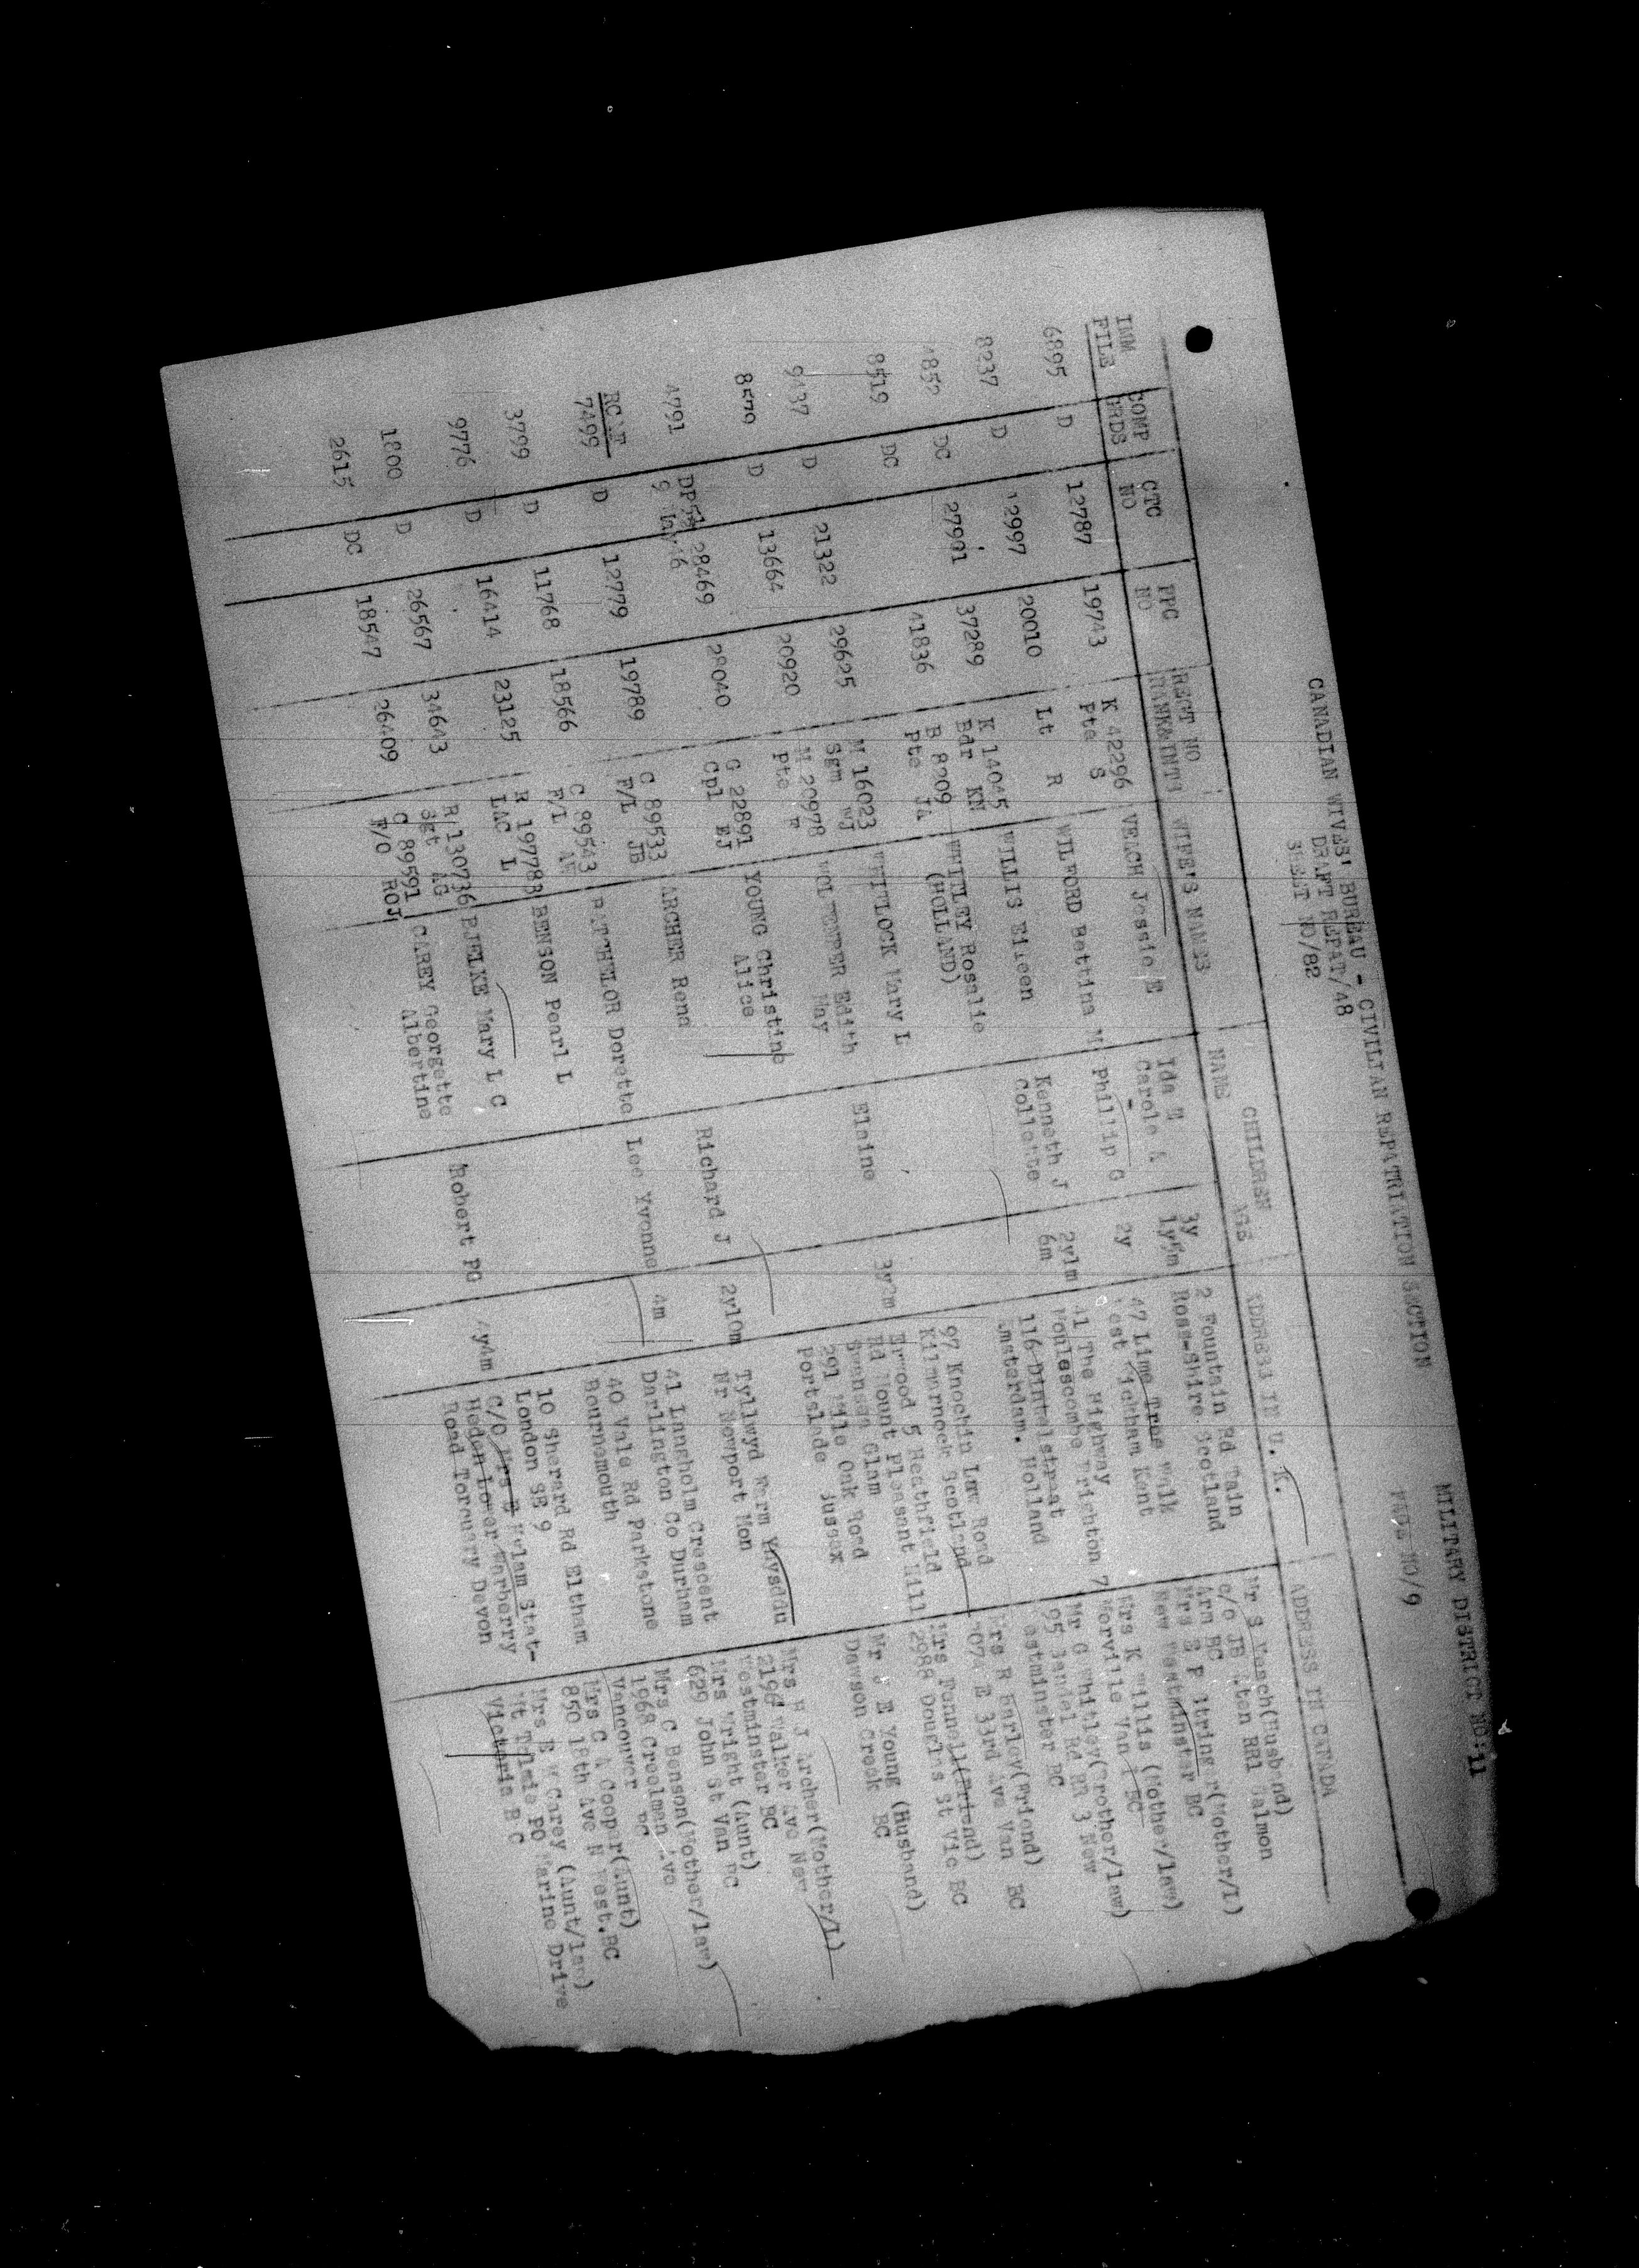 MILITARY DISTRICT NO:11
CANADIAN WIVES' BUREAU - CIVILIAN REPATRIATION SECTION
DRAFT REPAT/48 PAGE NO/9
SHEET NO/82
IMM COMP CTC FPC REGT NO WIFE'S NAMES CHILDREN ADDRESS IN U. K. ADDRESS IN CANADA
FILE GRDS NO NO RANK&INTL NAME AGE
6895 D 12787 19743 K 42296 VEECH Jessie E Ida E 3y 2 Fountain Rd Tain Mr S Veech(Husband)
Pte S Carole A Ross-Shire Scotland c/o JB RR1 Salmon
Arm BC
8237 D 12997 20010 Lt R WILFORD Bettina M Phillip G 2y 47 Lime Tree Walk Mrs S F Stringer(Mother/L)
West Wickham Kent New Westminster BC
4852 DC 27901 37289 K 14045 WILLIS Eileen Kenneth J 2y1m 41 The Highway Mrs K Willis (Mother/law)
Bdr KN Collette 6m Moulescombe Brighton 7 Norville Van BC
8519 DC 41836 B 8209 WHITLEY Rosalie 116 Dintelstraat Mr G Whitley(Brother/law)
Pte JA (HOLLAND) Amsterdam. Holland 95 Rd RR 3 New
Westminster BC
9437 D 21322 29625 M 16023 WHITLOCK Mary L Elaine 97 Knockin Law Road Mrs R Harley(Friend)
Sgm WJ Kilmarnock Scotland E 33rd Ave Van BC
8579 D 13664 20920 M 20978 Edith 5 Heathfield Mrs (Friend)
Pte F May Rd Mount Pleasant Hill 2988 Douglas St Vic BC
Swansea Glam
4791 DP51 28469 28040 G 22891 YOUNG Christine 291 Mile Oak Road Mr J E Young (Husband)
9 May46 Cpl EJ Alice Portslade Sussex Dawson Creek BC
RCAF
7499 D 12779 19789 C 89533 ARCHER Rena Richard J 2y10m Tyllwyd Farm Mrs J Archer(Mother/L)
F/L JB Nr Newport Mon Walker Ave New
Westminster BC
3799 D 11768 18566 C 89543 BATCHELOR Dorette Lee Yvonne 4m 41 Langholm Crescent Mrs Wright (Aunt)
F/L Darlington Co Durham 629 John St Van BC
9776 D 16414 23125 R 197783 BENSON Pearl L 40 Vale Rd Parkstone Mrs C Benson(Mother/law)
LAC L Bournemouth 1968 Creelman Ave
Vancouver BC
1800 D 26567 34643 R 130736 BJELKE Mary L C Robert PO 4y4m 10 Sherard Rd Eltham Mrs C A Cooper(Aunt)
Sgt AG London SE 9 850 18th Ave N West.BC
2615 DC 18547 26409 C 89591 CAREY Georgette C/O Mrs B Stat- Mrs E W Carey (Aunt/law)
F/O ROJ Albertine Heden Lower Warberry Mt Tolmie PO Marine Drive
Road Torquay Devon Victoria B C